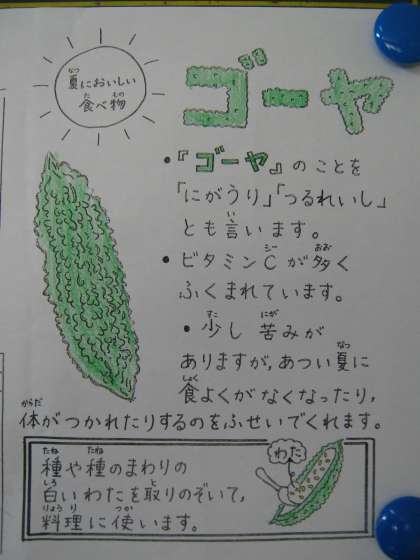 夏においしい
食べ物
ゴーヤ
•『ゴーヤ』のことを
「にがうり」「つるれいし」
とも言います。
•ビタミンCが多く
ふくまれています。
•少し苦みが
ありますが,あつい夏に
食よくがなくなったり,
体がつかれたりするのをふせいでくれます。
わた
種や種のまわりの
白いわたを取りのぞいて,
料理に使います。